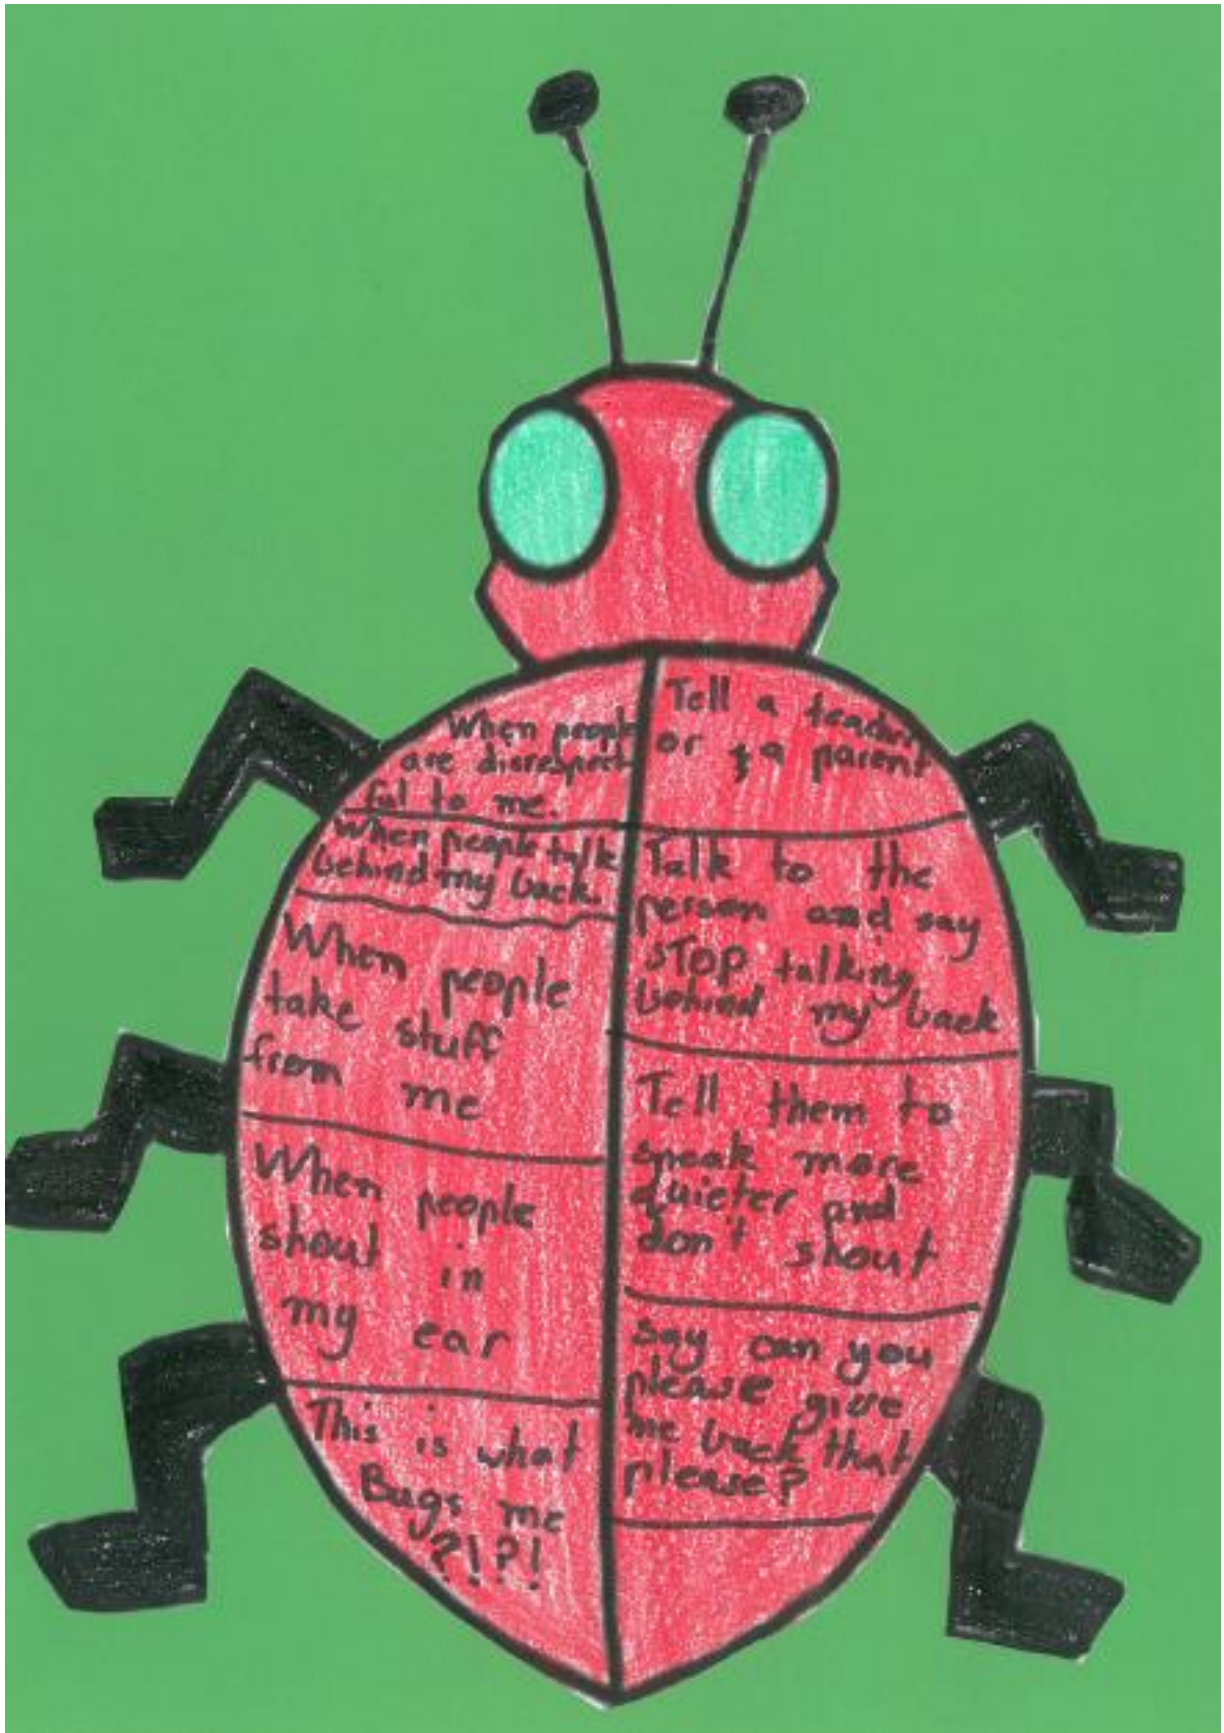 When people
are disrespect
ful to me.
When people talk
behind my back.
When people
take stuff
from me
When people
shout in
my ear
This is what
Bugs me
?!?!
Tell a teacher
or a parent
Talk to the
person and say
STOP talking
behind my back
Tell them to
speak more
quieter and
don't shout
say can you
please give
me back that
please?